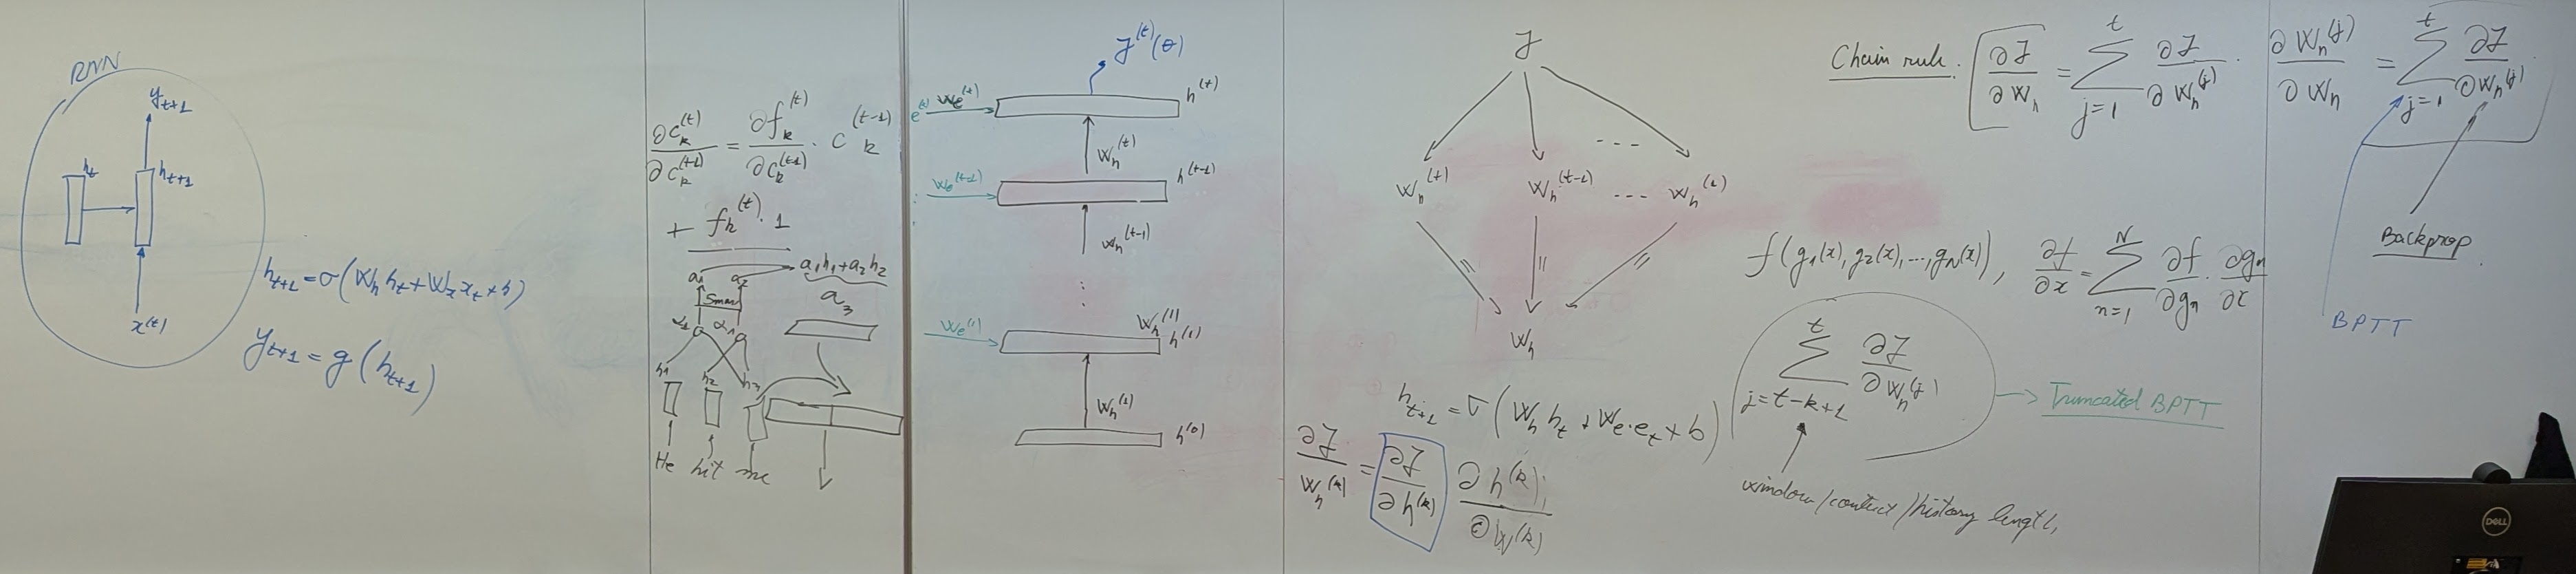 RNN
y_{t+1}
h_t
h_{t+1}
x^{(t)}
h_{t+1} = σ(W_h h_t + W_x x_t + b)
y_{t+1} = g(h_{t+1})
∂C_k^{(t)} / ∂C_k^{(t-1)} = ∂f_k^{(t)} / ∂C_k^{(t-1)} · C_k^{(t-1)}
+ f_k^{(t)} · 1
a_1 a_2 a_1h_1+a_2h_2
a_3
α_1
h_1 h_2 h_3
He hit me
J^{(t)}(θ)
e^{(t)} W_e^{(t)} h^{(t)}
W_h^{(t)}
W_e^{(t-1)} h^{(t-1)}
W_h^{(t-1)}
⋮
W_e^{(1)} W_h^{(1)} h^{(1)}
W_h^{(1)}
h^{(0)}
J
- - -
W_h^{(t)} W_h^{(t-1)} - - - W_h^{(1)}
|| || ||
W_h
h_{t+1} = σ(W_h h_t + W_e·e_t + b)
∂J / W_h^{(k)} = ∂J / ∂h^{(k)} ∂h^{(k)} / ∂W^{(k)}
Chain rule. ∂J / ∂W_h = Σ_{j=1}^{t} ∂J / ∂W_h^{(j)} · ∂W_h^{(j)} / ∂W_h = Σ_{j=1}^{t} ∂J / ∂W_h^{(j)}
Backprop
BPTT
f(g_1(x), g_2(x), ..., g_N(x)), ∂f / ∂x = Σ_{n=1}^{N} ∂f / ∂g_n · ∂g_n / ∂x
Σ_{j=t-k+1}^{t} ∂J / ∂W_h^{(j)}
Truncated BPTT
window/context/history length
DELL